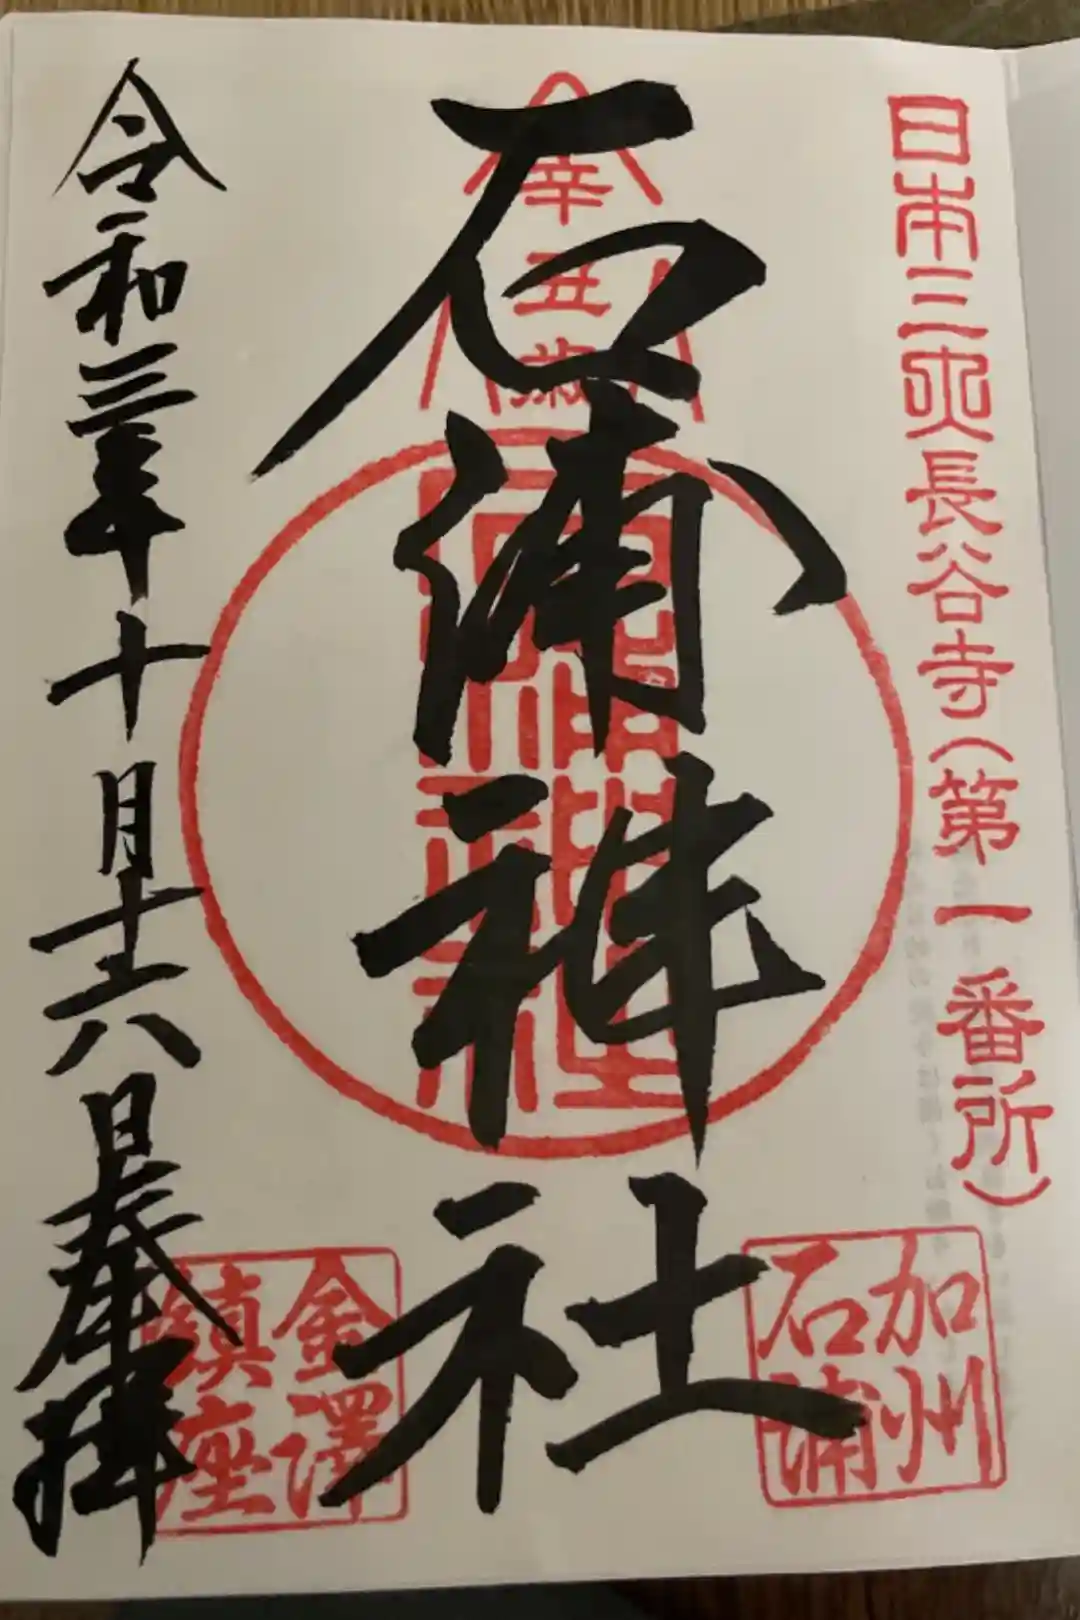 日本三大長谷寺(第一番所)
加州
石浦
辛丑歳
石浦神社
金澤
鎮座
令和三年十月十六日奉拝